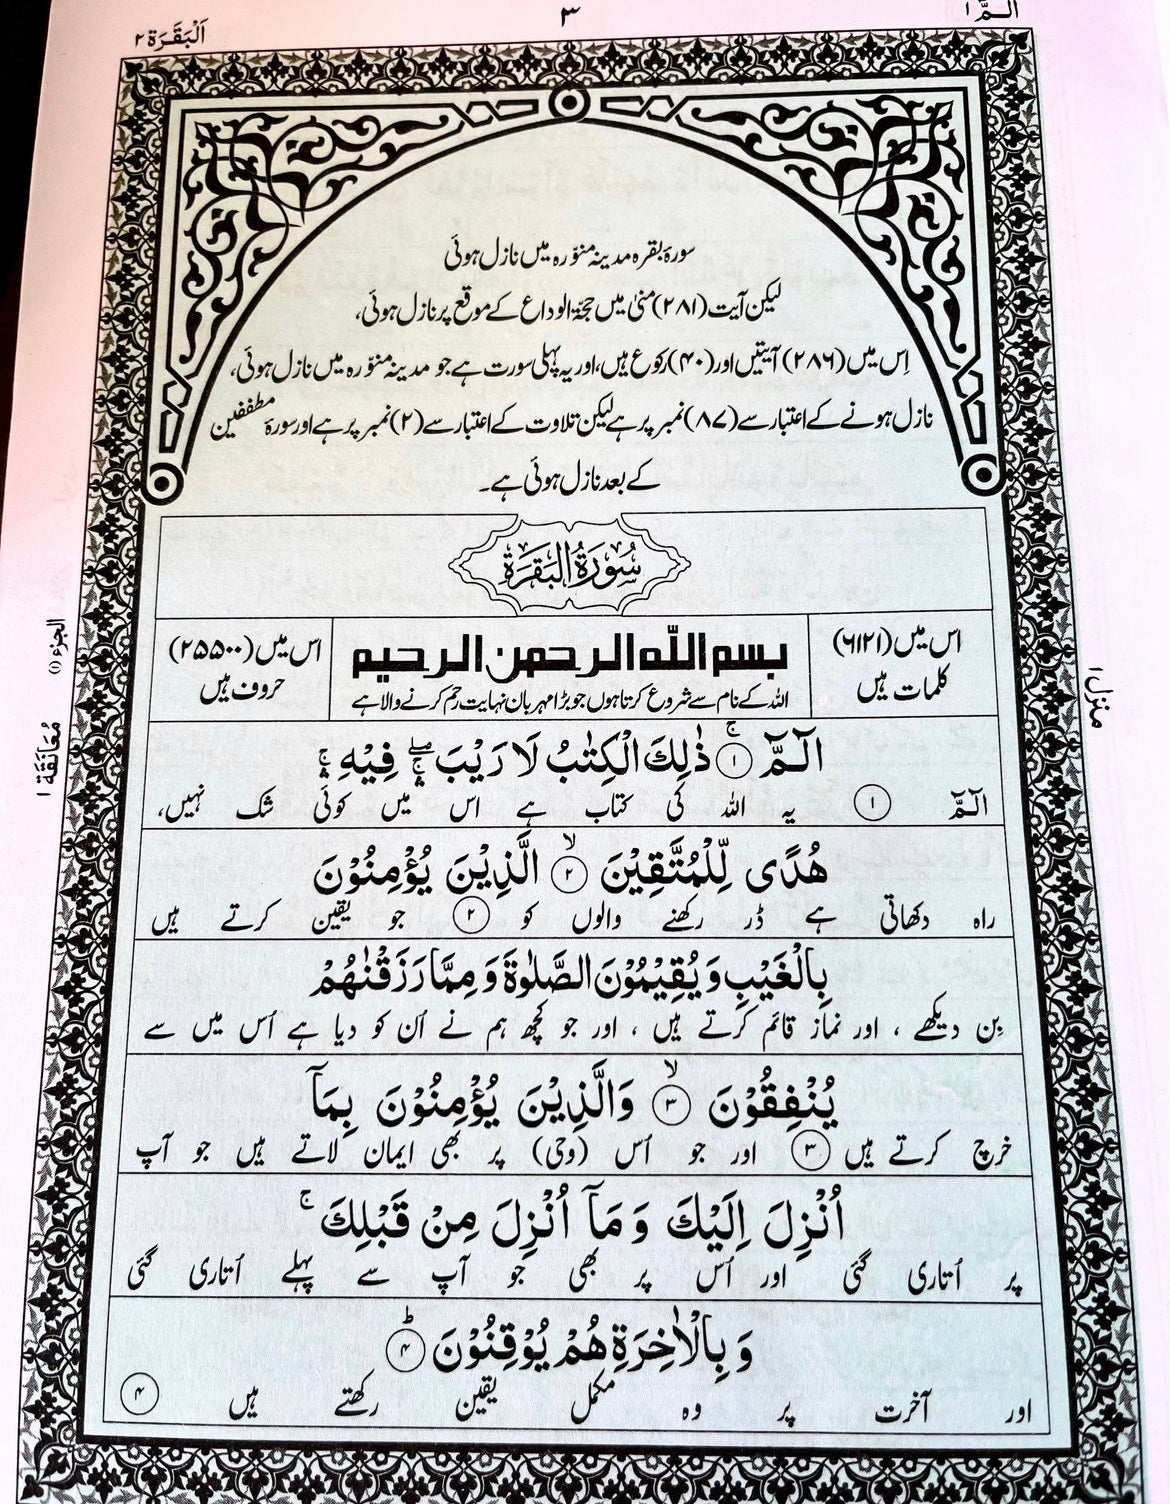 الٓمّٓ ۱
۳
اَلْبَقَرَة ۲
سورۂ بقرہ مدینہ منوّرہ میں نازل ہوئی
لیکن آیت (۲۸۱) منیٰ میں حجۃ الوداع کے موقع پر نازل ہوئی،
اِس میں (۲۸۶) آیتیں اور (۴۰) رکوع ہیں، اور یہ پہلی سورت ہے جو مدینہ منوّرہ میں نازل ہوئی،
نازل ہونے کے اعتبار سے (۸۷) نمبر پر ہے لیکن تلاوت کے اعتبار سے (۲) نمبر پر ہے اور سورۂ مطففین
کے بعد نازل ہوئی ہے۔
سُوْرَةُ الْبَقَرَةِ
اس میں (۶۱۲۱)
کلمات ہیں
بسم الله الرحمن الرحيم
اللہ کے نام سے شروع کرتا ہوں جو بڑا مہربان نہایت رحم کرنے والا ہے
اس میں (۲۵۵۰۰)
حروف ہیں
الجزء (۱)
مُعَانَقَة ۱
منزل ۱
الٓمّٓ ۚ﴿۱﴾ ذٰلِكَ الْكِتٰبُ لَا رَيْبَ ۛۖ فِيْهِ ۛۚ
الٓمّٓ ﴿۱﴾ یہ اللہ کی کتاب ہے اس میں کوئی شک نہیں،
هُدًى لِّلْمُتَّقِيْنَ ۙ﴿۲﴾ الَّذِيْنَ يُؤْمِنُوْنَ
راہ دکھاتی ہے ڈر رکھنے والوں کو ﴿۲﴾ جو یقین کرتے ہیں
بِالْغَيْبِ وَيُقِيْمُوْنَ الصَّلٰوةَ وَمِمَّا رَزَقْنٰهُمْ
بِن دیکھے ، اور نماز قائم کرتے ہیں ، اور جو کچھ ہم نے اُن کو دیا ہے اُس میں سے
يُنْفِقُوْنَ ۙ﴿۳﴾ وَالَّذِيْنَ يُؤْمِنُوْنَ بِمَآ
خرچ کرتے ہیں ﴿۳﴾ اور جو اُس (وحی) پر بھی ایمان لاتے ہیں جو آپ
اُنْزِلَ اِلَيْكَ وَمَآ اُنْزِلَ مِنْ قَبْلِكَ ۚ
پر اُتاری گئی اور اُس پر بھی جو آپ سے پہلے اُتاری گئی
وَبِالْاٰخِرَةِ هُمْ يُوْقِنُوْنَ ؕ﴿۴﴾
اور آخرت پر وہ مکمل یقین رکھتے ہیں ﴿۴﴾